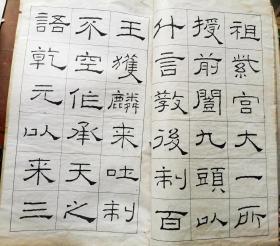 祖紫宫大一所
授前闓九頭以
什言教後制百
王獲麟来吐制
不空作承天之
語乾元以来三